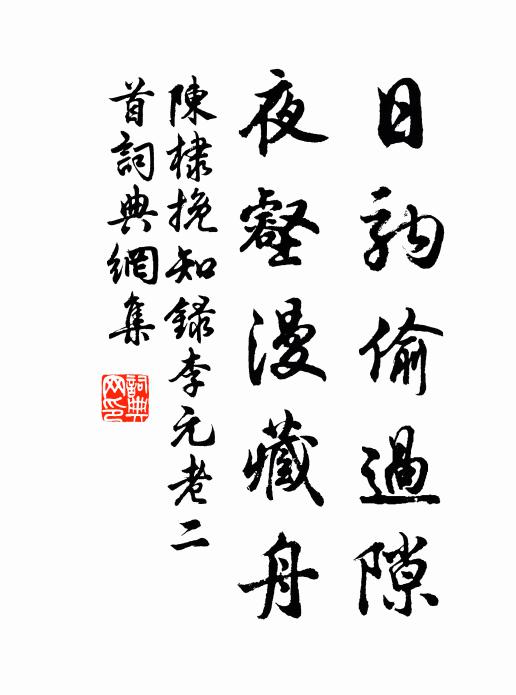 日駒偷過隙
夜壑漫藏舟
陳棣挽知錄李元老二
首詞典網集
詞典網印